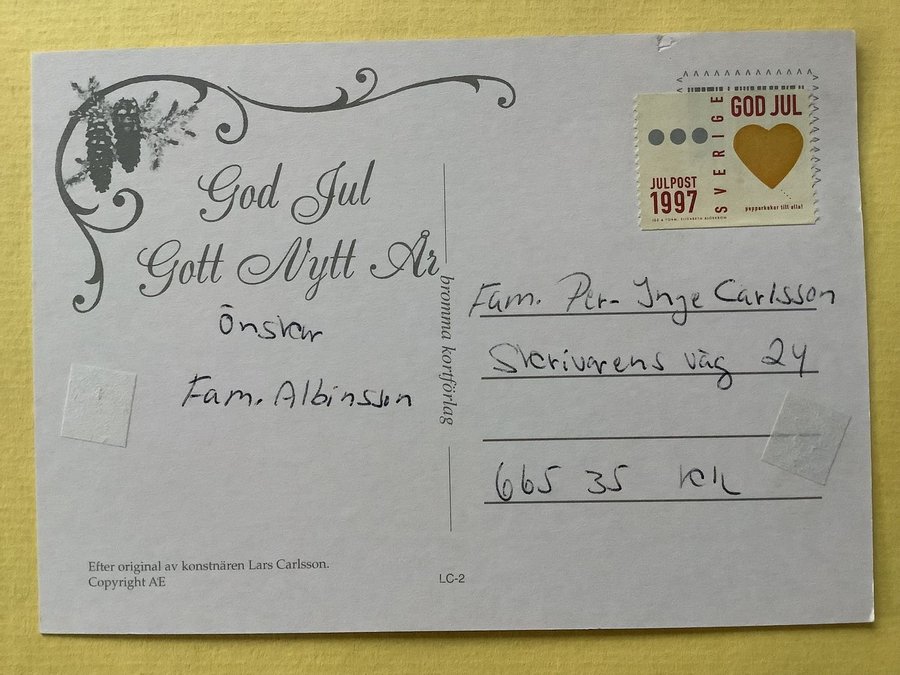 God Jul
Gott Nytt År
Önskar
Fam. Albinsson
Efter original av konstnären Lars Carlsson.
Copyright AE
bromma kortförlag
LC-2
GOD JUL
SVERIGE
JULPOST
1997
pepparkakor till alla!
Fam. Per-Inge Carlsson
Skrivarens väg 24
665 35 Kil